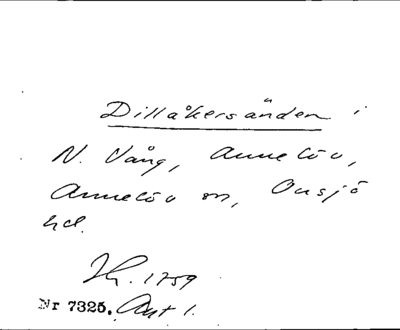 Dillåkersänden i
N. Vång, Annelöv,
Annelöv sn, Onsjö
hd.
1759
Nr 7325. Akt 1.